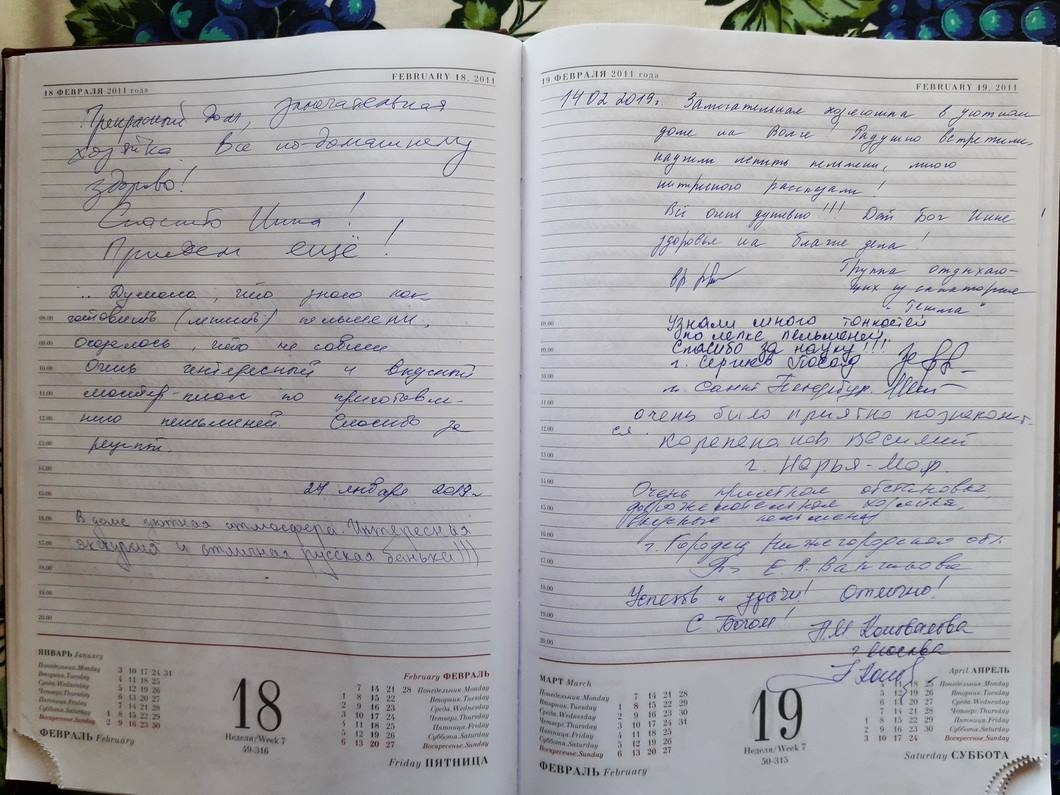 18 ФЕВРАЛЯ 2011 года
FEBRUARY 18, 2011
Прекрасный дом, замечательная
хозяйка. Все по-домашнему
здорово!
Спасибо Инна!
Придем ещё!
Думала, что знаю как
готовить (лепить) пельмени,
оказалось, что не совсем
Очень интересный и вкусный
мастер-класс по приготовле-
нию пельменей. Спасибо за
рецепт.
27 января 2019г.
В доме уютная атмосфера. Интересная
экскурсия и отличная русская банька)))
08.00
09.00
10.00
11.00
12.00
13.00
14.00
15.00
16.00
17.00
18.00
19.00
20.00
ЯНВАРЬ January
Понедельник.Monday 3 10 17 24 31
Вторник.Tuesday 4 11 18 25
Среда.Wednesday 5 12 19 26
Четверг.Thursday 6 13 20 27
Пятница.Friday 7 14 21 28
Суббота.Saturday 1 8 15 22 29
Воскресенье.Sunday 2 9 16 23 30
ФЕВРАЛЬ February
18
Неделя/Week 7
49-316
February ФЕВРАЛЬ
7 14 21 28 Понедельник.Monday
1 8 15 22 Вторник.Tuesday
2 9 16 23 Среда.Wednesday
3 10 17 24 Четверг.Thursday
4 11 18 25 Пятница.Friday
5 12 19 26 Суббота.Saturday
6 13 20 27 Воскресенье.Sunday
Friday ПЯТНИЦА
19 ФЕВРАЛЯ 2011 года
FEBRUARY 19, 2011
14 02 2019г. Замечательная хозяюшка в уютном
доме на Волге! Радушно встретили,
научили лепить пельмени, много
интересного рассказали!
Всё очень душевно!!! Дай Бог Инне
здоровья на благие дела!
Группа отдыхаю-
щих из санатория
Узнали много тонкостей
по лепке пельменей.
Спасибо за науку!!!
г. Сергиев Посад
г. Санкт Петербург.
очень было приятно познакомит-
ся.
Василий
г. Нарья-Мар.
Очень приятная обстановка
доброжелательная хозяйка,
вкусные пельмени
г. Городец Нижегородской обл.
Успехов и удачи! Отлично!
С Богом! Коновалова
г. Москва
09.00
10.00
11.00
12.00
13.00
14.00
15.00
16.00
17.00
18.00
19.00
20.00
МАРТ March
Понедельник.Monday 7 14 21 28
Вторник.Tuesday 1 8 15 22 29
Среда.Wednesday 2 9 16 23 30
Четверг.Thursday 3 10 17 24 31
Пятница.Friday 4 11 18 25
Суббота.Saturday 5 12 19 26
Воскресенье.Sunday 6 13 20 27
ФЕВРАЛЬ February
19
Неделя/Week 7
50-315
April АПРЕЛЬ
Понедельник.Monday
Вторник.Tuesday
Среда.Wednesday
7 14 21 28 Четверг.Thursday
1 8 15 22 29 Пятница.Friday
2 9 16 23 30 Суббота.Saturday
3 10 17 24 Воскресенье.Sunday
Saturday СУББОТА